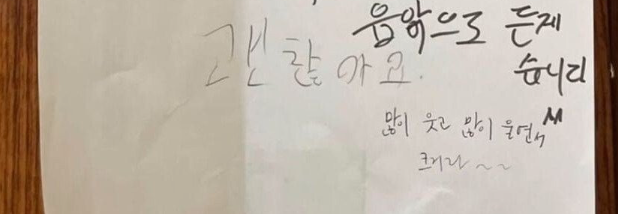 음악으로 든제
습니다
괜찮아요.
많이 웃고 많이 울면서
크거라~~